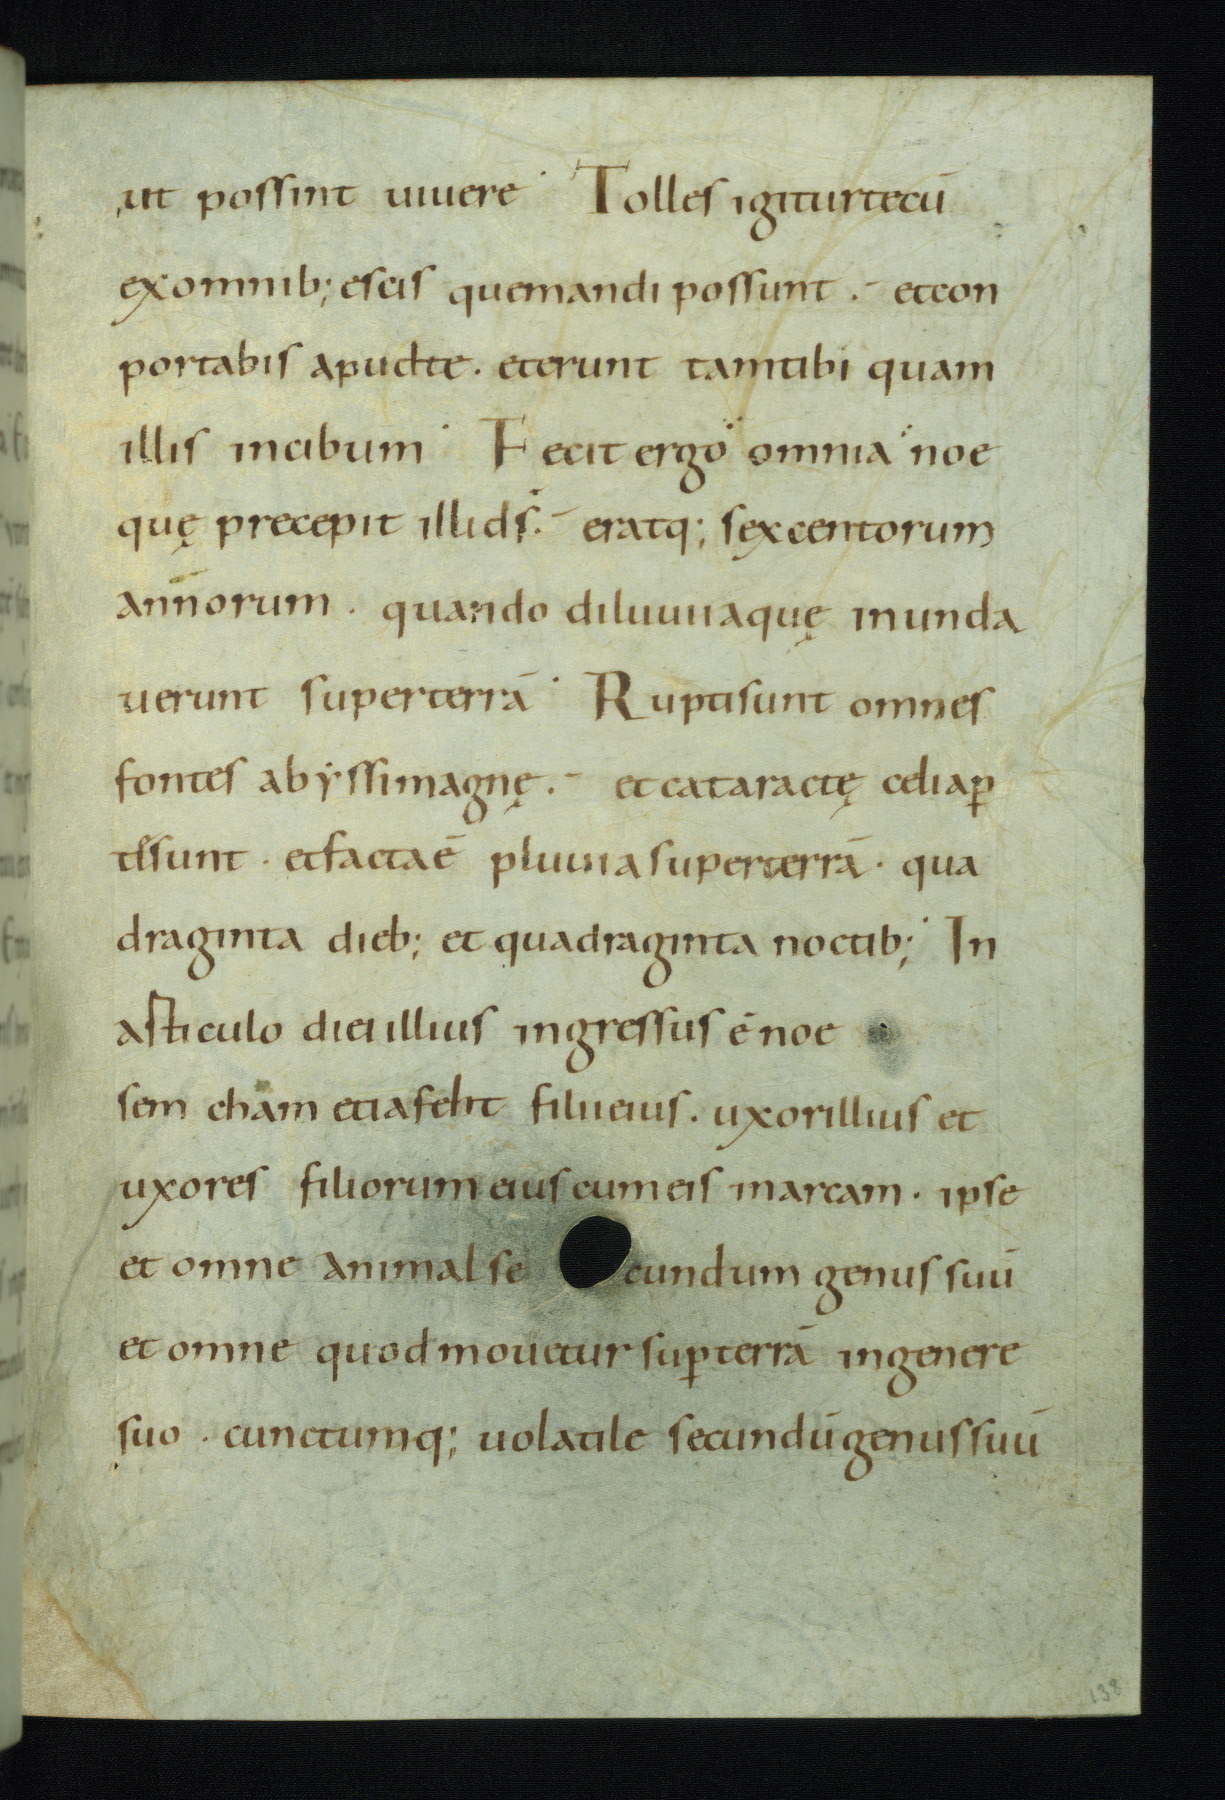 ut possint uiuere · Tolles igitur tecū
ex omnib; escis que mandi possunt .- et con
portabis apud te . et erunt tam tibi quam
illis in cibum · Fecit ergo omnia noe
quę precepit illi ds̄ .- eratq; sexcentorum
annorum . quando diluuii aquę inunda
uerunt super terrā · Rupti sunt omnes
fontes abyssi magnę .- et cataractę celi ap̄
tę sunt . et facta ē pluuia super terrā . qua
draginta dieb; et quadraginta noctib; · In
articulo diei illius ingressus ē noe
sem cham et iafeht filii eius . uxor illius et
uxores filiorum eius cum eis in arcam . ipse
et omne animal se cundum genus suū
et omne quod mouetur sup̄ terrā in genere
suo . cunctumq; uolatile secundū genus suū
138